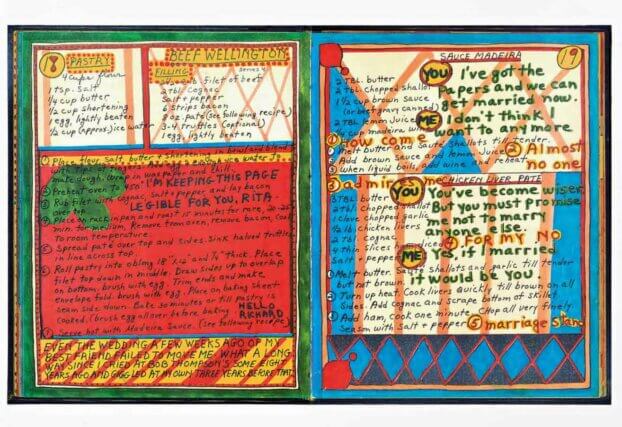 18
PASTRY
4 cups flour
1 tsp. salt
1/4 cup butter
1/2 cup shortening
1 egg, lightly beaten
1/2 cup (approx.) ice water
BEEF WELLINGTON
FILLING
serves
filet of beef
2 tbl. cognac
Salt + pepper
6 strips bacon
oz. pate (See following recipe)
3-4 truffles (optional)
1 egg, lightly beaten
① Place flour, salt, butter + shortening in bowl and blend
with tips of fingers. Add egg and enough ice water to
make dough. Wrap in wax paper and chill.
I'M KEEPING THIS PAGE
② Preheat oven to 450°.
③ Rub filet with cognac, salt + pepper, and lay bacon
over top.
LEGIBLE FOR YOU, RITA-
④ Place on rack in pan and roast 15 minutes for rare, 20-25
min. for medium. Remove from oven, remove bacon, cook
to room temperature.
⑤ Spread pate over top and sides. Sink halved truffles
in line across top.
⑥ Roll pastry into oblong 18" x 12" and 1/4" thick. Place
filet top down in middle. Draw sides up to overlap
on bottom, brush with egg. Trim ends and make
envelope fold. brush with egg. Place on baking sheet
seam side down. Bake 30 minutes or till pastry is
cooked. (brush egg all over before baking.
HELLO
RICHARD
⑦ Serve hot with Madeira Sauce. (see following recipe)
EVEN THE WEDDING A FEW WEEKS AGO OF MY
BEST FRIEND FAILED TO MOVE ME. WHAT A LONG
WAY SINCE I CRIED AT BOB THOMPSON'S SOME EIGHT
YEARS AGO AND GIGGLED AT MY OWN THREE YEARS BEFORE THAT
19
SAUCE MADEIRA
2 TBL. butter
2 tbl chopped shallot
1 1/2 cup brown sauce
(or beef gravy canned)
2 TBL. lemon juice
1/4 cup madeira wine
YOU I've got the
Papers and we can
get married now.
ME I don't think I
want to any more
① how come
① Melt butter and sauté shallots till tender.
② Add brown sauce and lemon juice.
③ when liquid boils, add wine and reheat.
② Almost
no one
③ admires me
CHICKEN LIVER PATE
3 TBL butter
2 tbl chopped shallot
1 clove chopped garlic
1/2 lb. chicken livers
2 tbl. cognac
4 thin slices
Salt pepper
YOU You've become wiser
But you must promise
me not to marry
anyone else.
④ FOR MY NO
ME Yes, if I married
it would be you.
① Melt butter. Sauté shallots and garlic till tender
but not brown.
② Turn up heat. Cook livers quickly till brown on all
Sides. Add cognac and scrape bottom of skillet
③ Add ham, cook one minute. Chop all very finely.
Season with salt + pepper
⑤ marriage stand